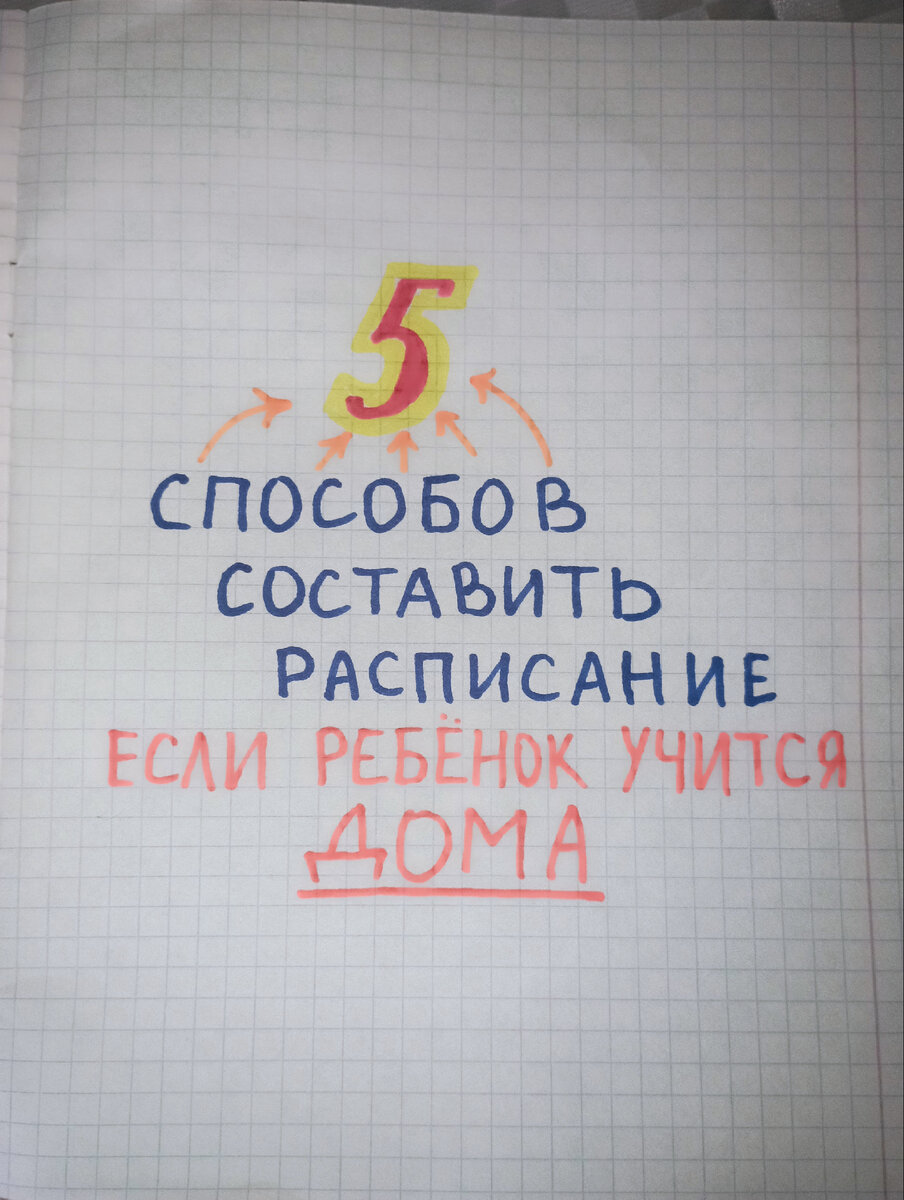 5
СПОСОБОВ
СОСТАВИТЬ
РАСПИСАНИЕ
ЕСЛИ РЕБЁНОК УЧИТСЯ
ДОМА